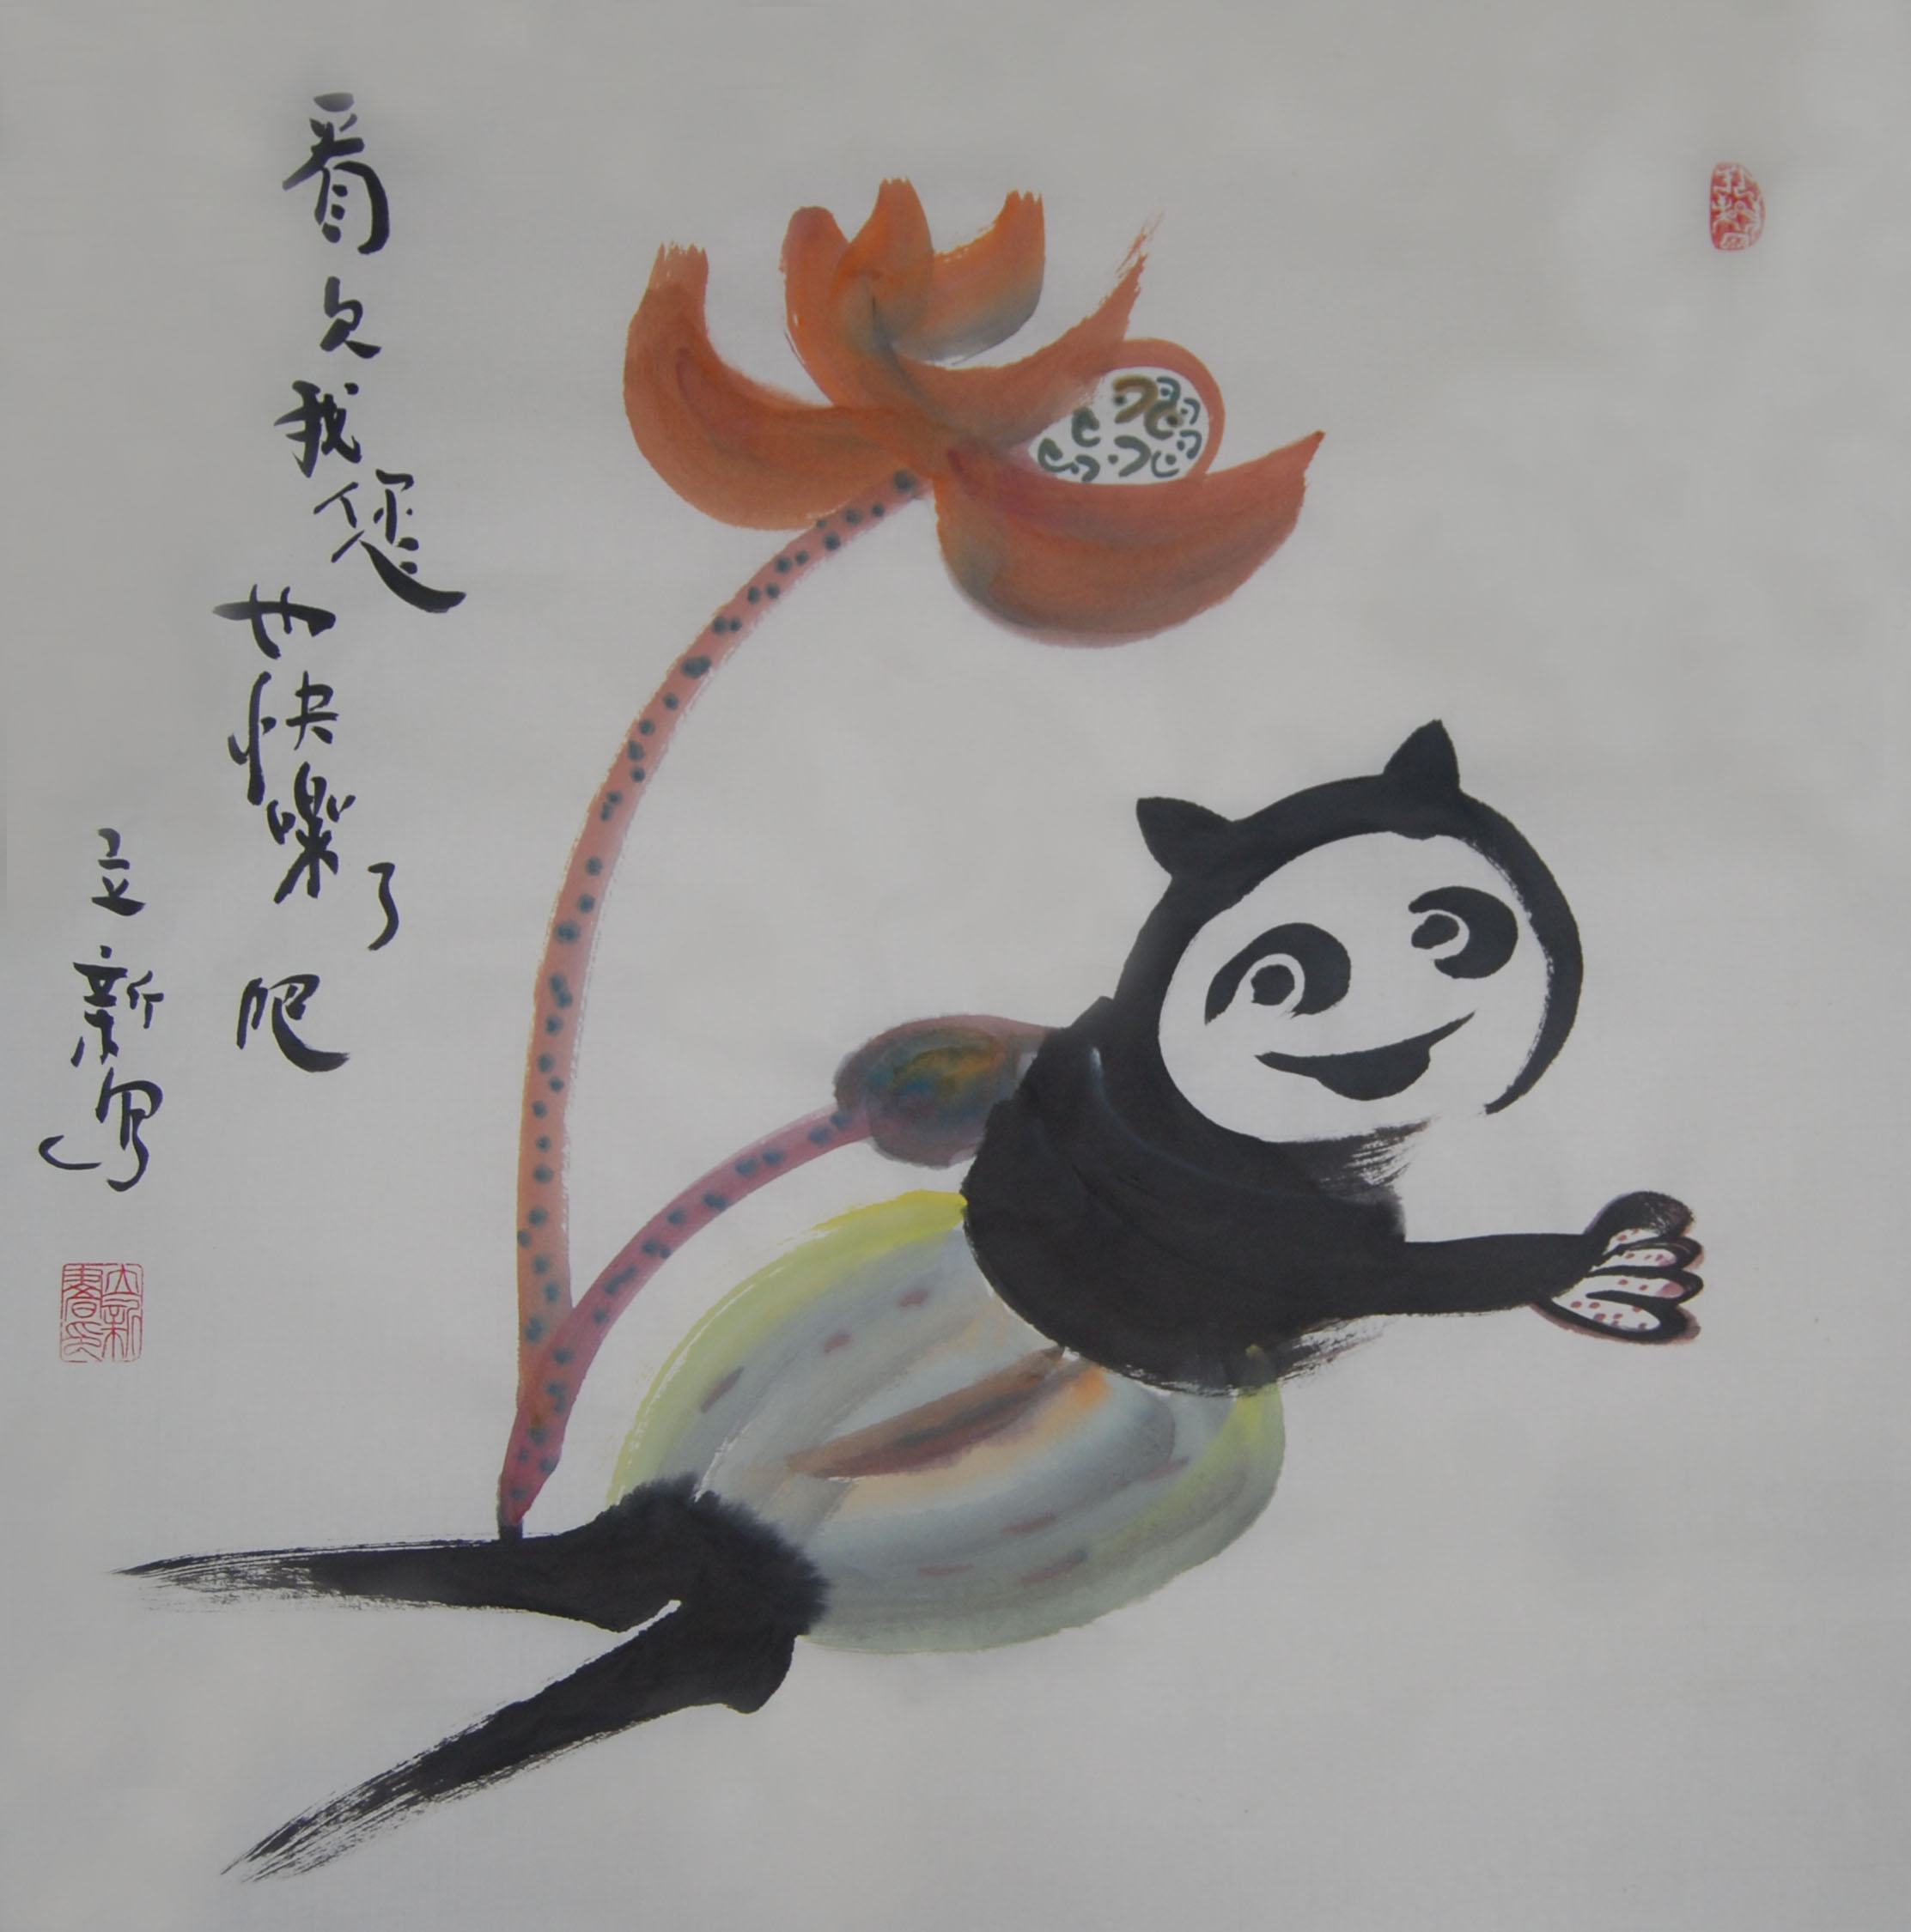 看久我您
也快樂了吧
立新写